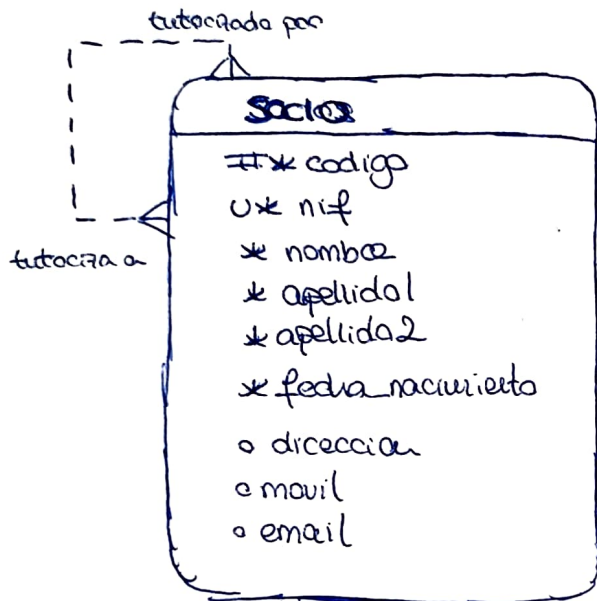 tutorizado por
Socios
#* codigo
U* nif
* nombre
* apellido1
* apellido2
* fecha_nacimiento
o direccion
o movil
o email
tutoriza a